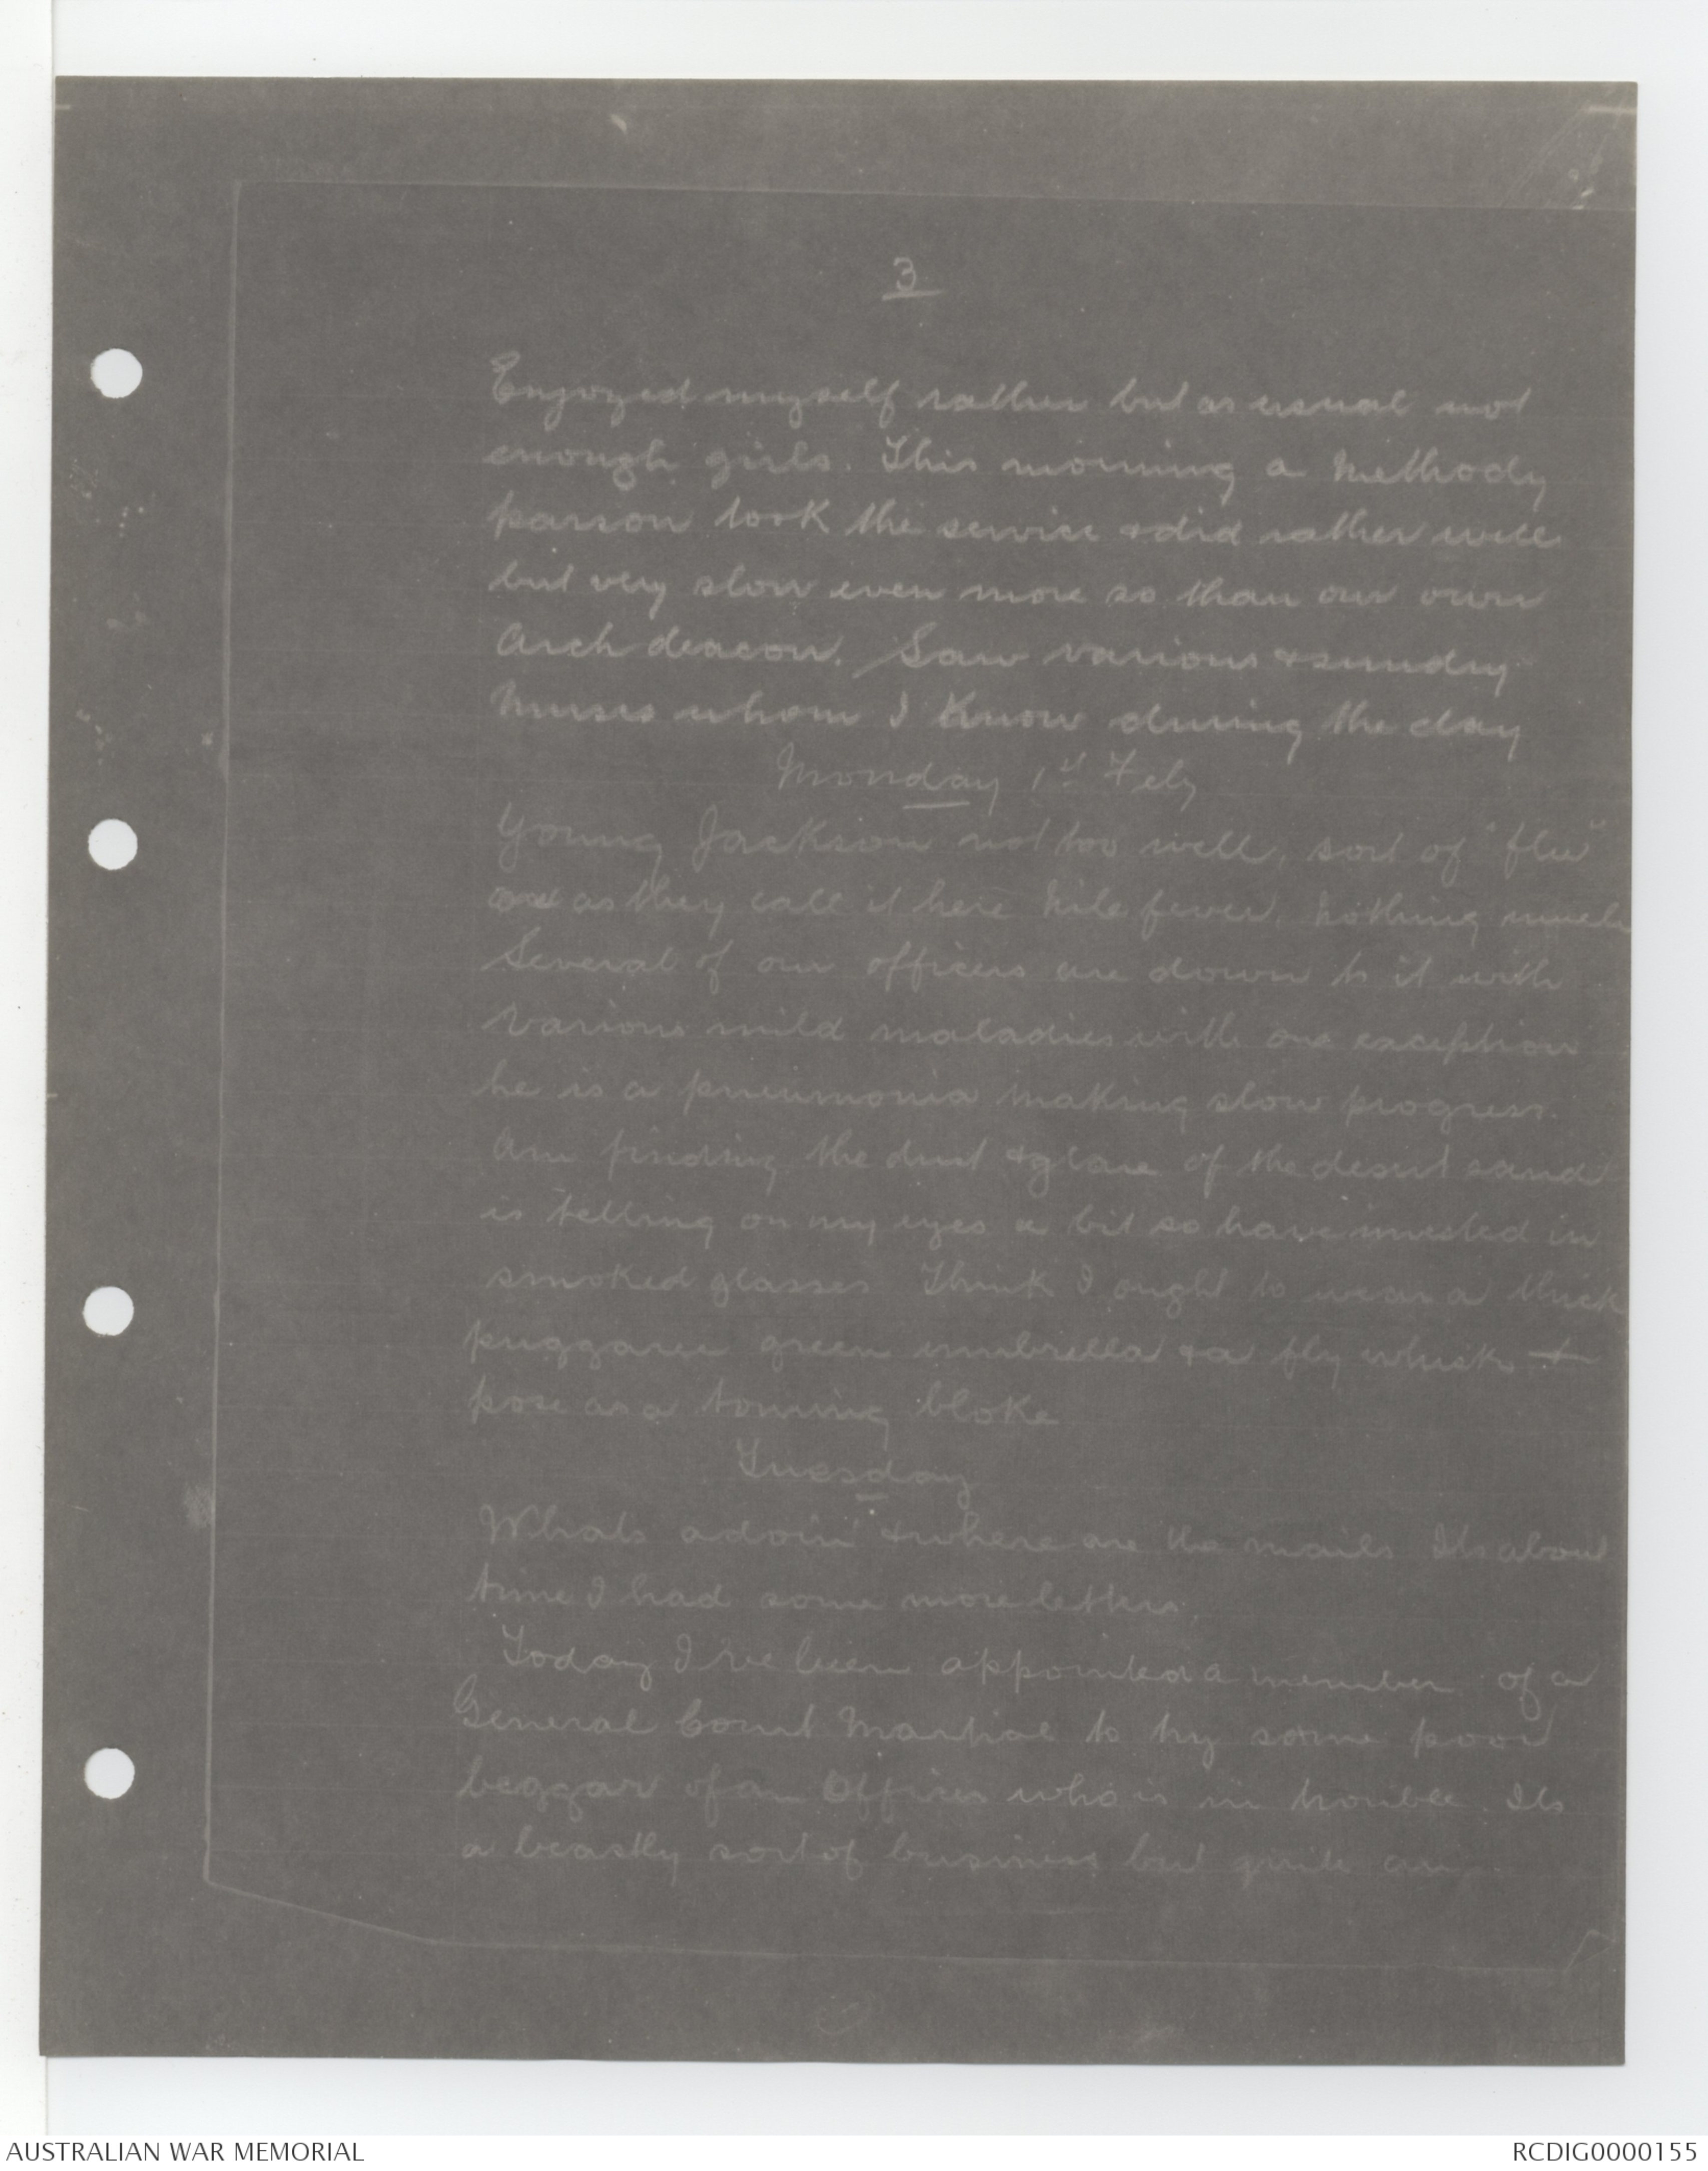 3
Enjoyed myself rather but as usual not
enough girls. This morning a Methody
parson took the service & did rather well
but very slow even more so than our own
Arch deacon. Saw various & sundry
Nurses whom I know during the day
Monday 1st Feby
Young Jackson not too well, sort of "flu"
as they call it here Nile fever. Nothing much
Several of our officers are down to it with
various mild maladies with one exception
he is a pneumonia making slow progress.
Am finding the dust & glare of the desert sand
is telling on my eyes a bit so have invested in
smoked glasses Think I ought to wear a thick
puggaree green umbrella & a fly whisk &
pose as a touring bloke
Tuesday
Whats adoin' & where are the mails Its about
time I had some more letters.
Today I've been appointed a member of a
General Court Martial to try some poor
beggar of an Officer who is in trouble. Its
a beastly sort of business but quite an
AUSTRALIAN WAR MEMORIAL
RCDIG0000155